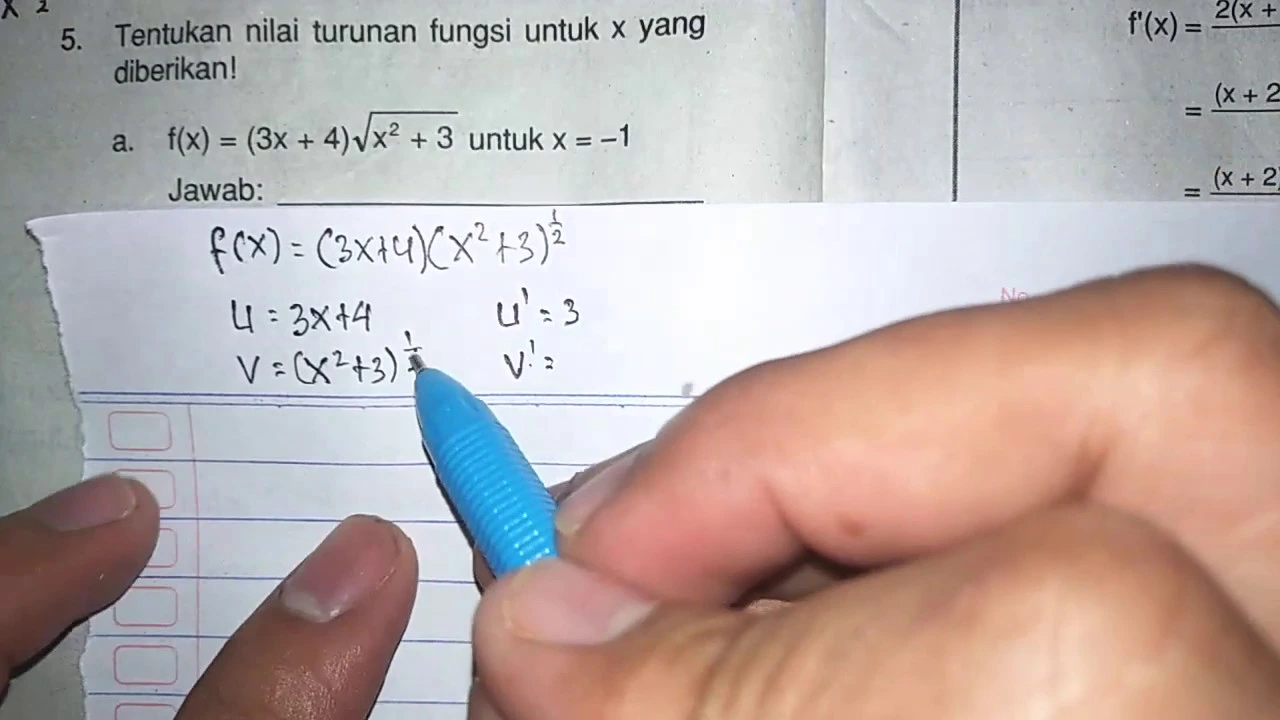 x 2
5. Tentukan nilai turunan fungsi untuk x yang
diberikan!
a. f(x) = (3x + 4)√(x² + 3) untuk x = −1
Jawab:
f(x) = (3x+4)(x²+3)^½
u = 3x+4 u' = 3
v = (x²+3) v' =
No
f'(x) = 2(x +
= (x + 2
= (x + 2)